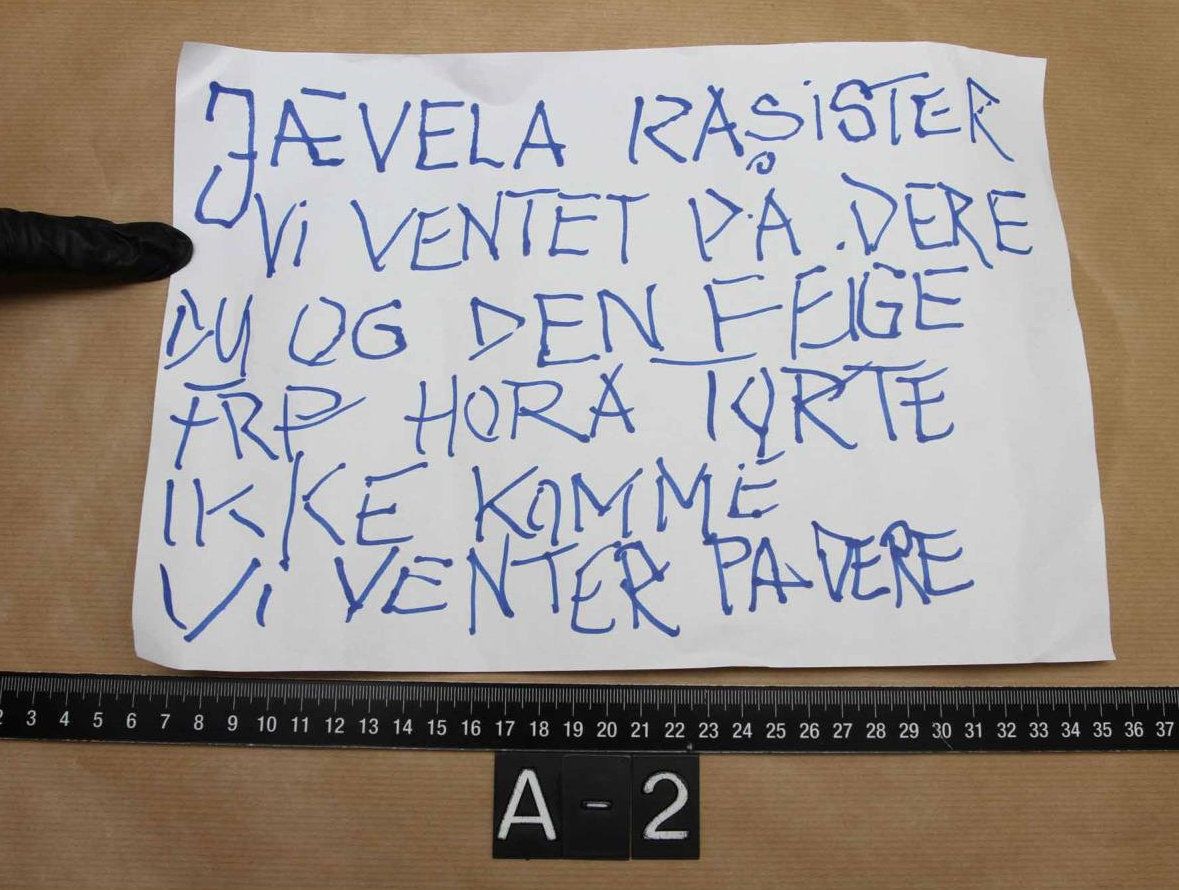 JÆVELA RASISTER
Vi VENTET PÅ DERE
DU OG DEN FEIGE
FRP HORA TORTE
IKKE KOMME
Vi VENTER PA DERE
2 3 4 5 6 7 8 9 10 11 12 13 14 15 16 17 18 19 20 21 22 23 24 25 26 27 28 29 30 31 32 33 34 35 36 37
A-2